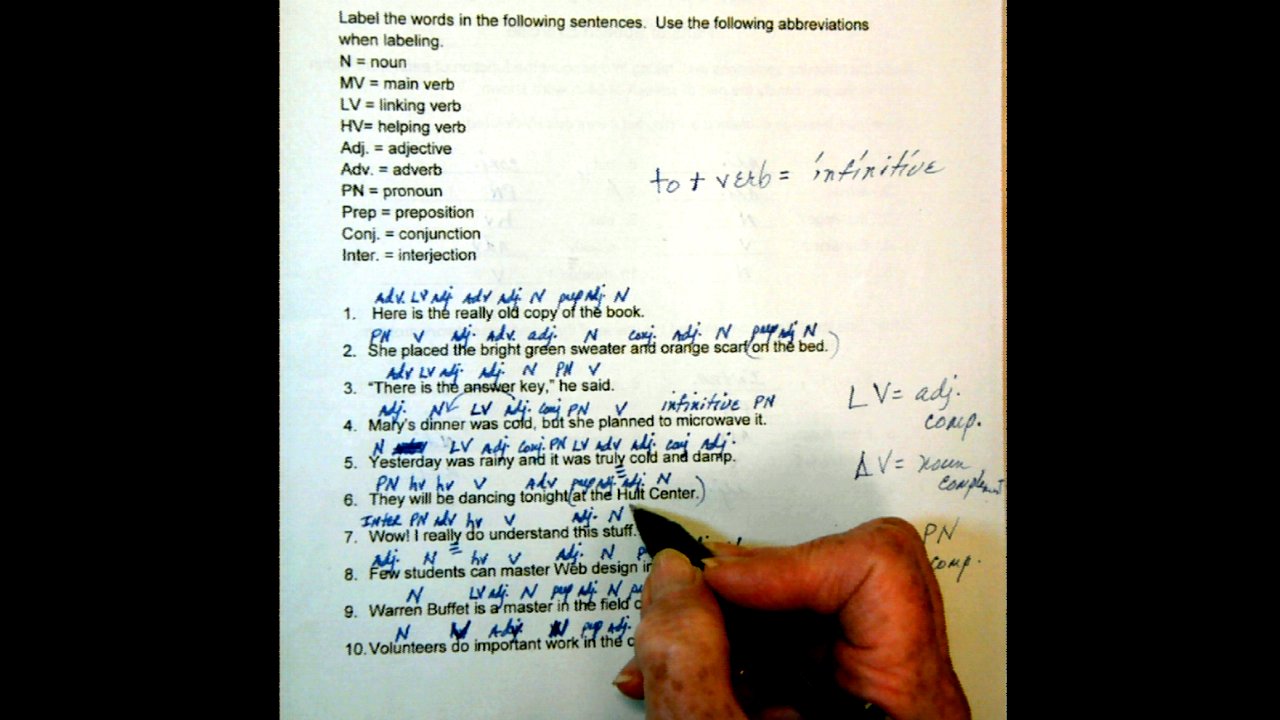 Label the words in the following sentences. Use the following abbreviations
when labeling.
N = noun
MV = main verb
LV = linking verb
HV= helping verb
Adj. = adjective
Adv. = adverb
PN = pronoun
Prep = preposition
Conj. = conjunction
Inter. = interjection
to + verb = infinitive
Adv. LV Adj Adv Adj N prep Adj N
1. Here is the really old copy of the book.
PN V Adj. Adv. adj. N conj. Adj. N prep Adj N
2. She placed the bright green sweater and orange scarf (on the bed.)
Adv LV Adj. Adj. N PN V
3. "There is the answer key," he said.
Adj. N LV Adj. conj PN V infinitive PN
4. Mary's dinner was cold, but she planned to microwave it.
N LV Adj. Conj. PN LV Adv Adj. conj Adj.
5. Yesterday was rainy and it was truly cold and damp.
PN hv hv V Adv prep Adj Adj. N
6. They will be dancing tonight (at the Hult Center.)
Inter PN adv hv V Adj. N
7. Wow! I really do understand this stuff.
Adj. N hv V Adj. N
8. Few students can master Web design in
N LV Adj. N prep Adj. N
9. Warren Buffet is a master in the field
N Adj prep Adj.
10. Volunteers do important work in the
LV = adj.
comp.
LV = noun
PN
comp.